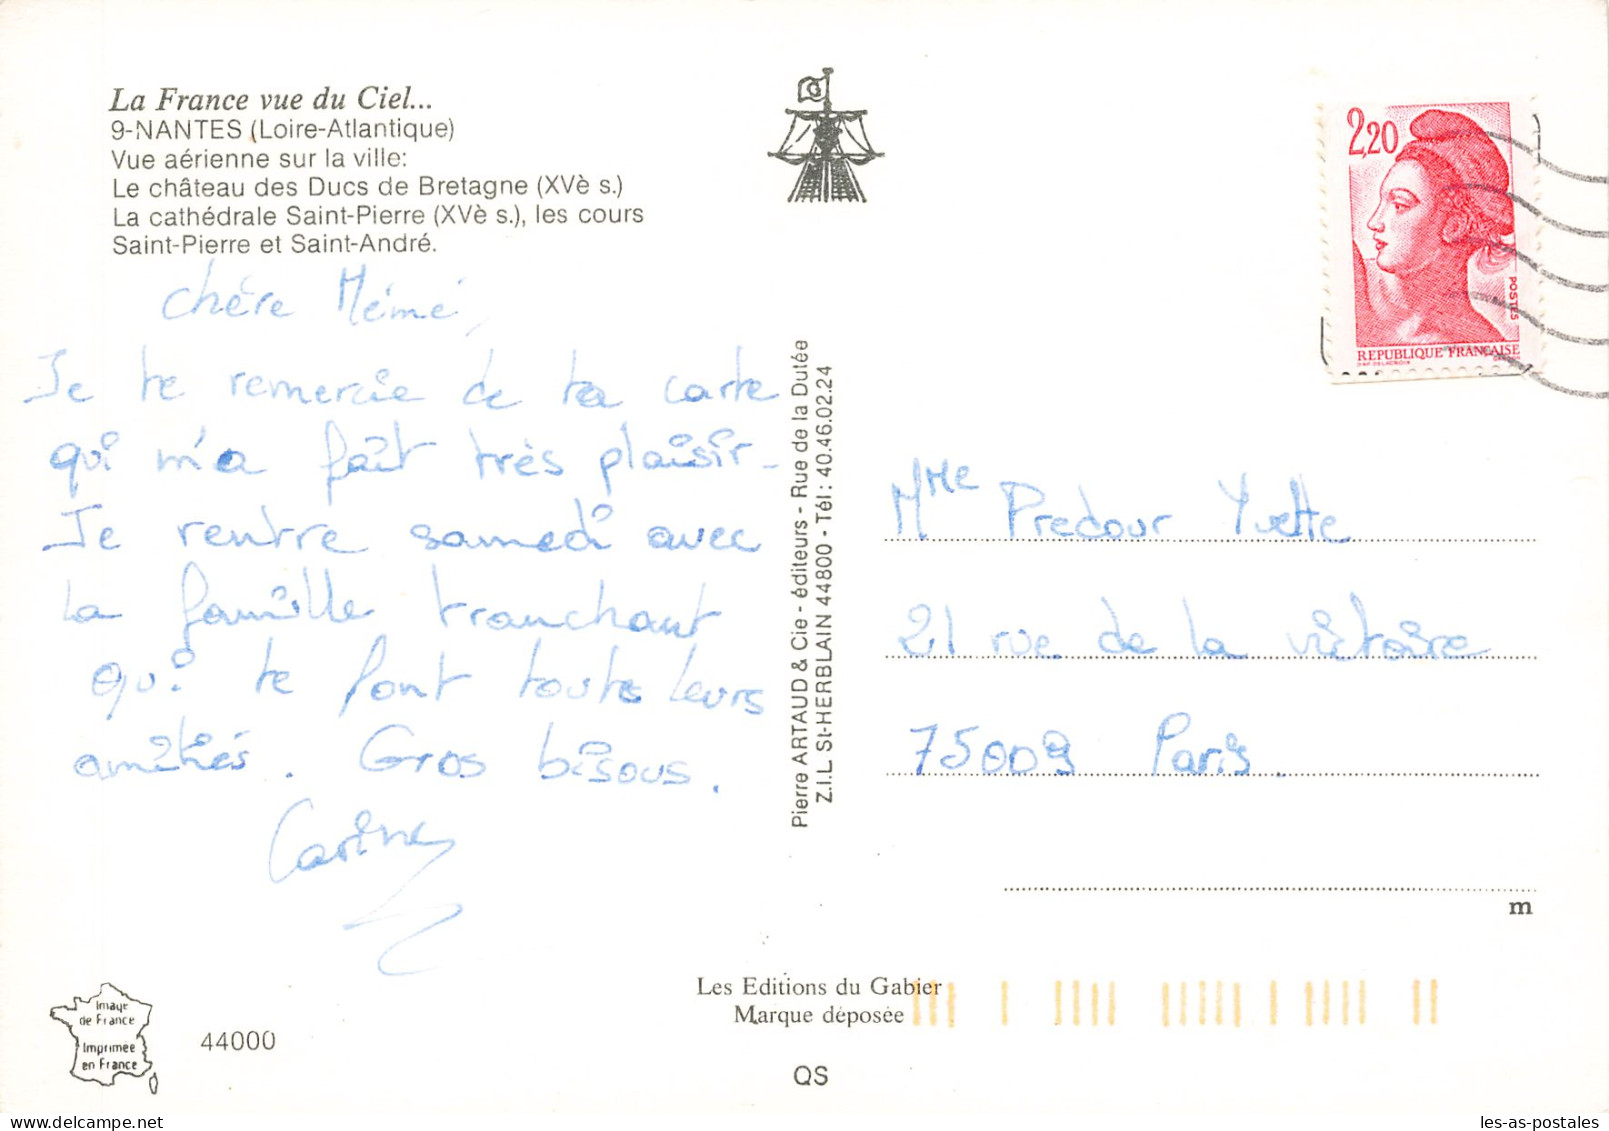 La France vue du Ciel...
9-NANTES (Loire-Atlantique)
Vue aérienne sur la ville:
Le château des Ducs de Bretagne (XVè s.)
La cathédrale Saint-Pierre (XVè s.), les cours
Saint-Pierre et Saint-André.
chère Mémé,
Je te remercie de ta carte
qui m'a fait très plaisir -
Je rentre samedi avec
la famille tranchant
qui te font toute leurs
amitiés. Gros bisous.
Carine
Image
de France
Imprimée
en France
44000
Pierre ARTAUD & Cie - éditeurs - Rue de la Dutée
Z.I.L St-HERBLAIN 44800 - Tél : 40.46.02.24
G
2,20
POSTES
REPUBLIQUE FRANÇAISE
DAP. DELACROIX
Mme Predour Yvette
21 rue de la victoire
75009 Paris.
m
Les Editions du Gabier
Marque déposée
QS
les-as-postales